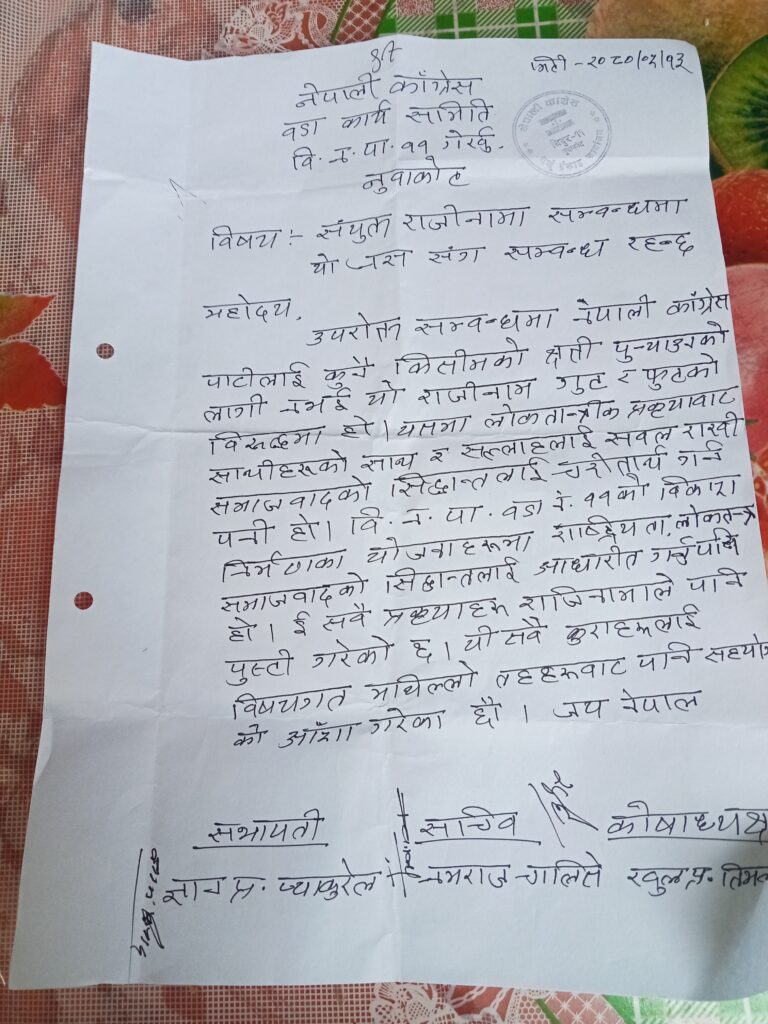 श्री
मिति - २०८०/०२/१३
नेपाली काँग्रेस
वडा कार्य समिति
वि. न. पा. ११ गेर्खु.
नुवाकोट
विषय :- संयुक्त राजीनामा सम्वन्धमा
यो जस संग सम्वन्ध रहन्छ
महोदय,
उपरोक्त सम्वन्धमा नेपाली काँग्रेस
पार्टीलाई कुनै किसीमको क्षती पु-याउनको
लागी नभई यो राजीनाम गुट र फुटको
विरूद्धमा हो। यसमा लोकतान्त्रीक प्रकृयावाट
साथीहरूको साथ र सल्लाहलाई सवल राखी
समाजवादको सिद्धान्तलाई चरीतार्थ गर्न
पनी हो। वि. न. पा. वडा नं. ११ को विकाश
निर्माणका योजनाहरूमा राष्ट्रियता, लोकतन्त्र
समाजवादको सिद्धान्तलाई आधारीत गर्नुपर्ने
हो। ई सवै प्रकृयाहरू राजिनामाले पनि
पुस्टी गरेको छ। यी सवै कुराहरूलाई
विषयगत माथिल्लो तहहरूवाट पनि सहयोग
को आँशा गरेका छौं। जय नेपाल
सभापती सचिव कोषाध्यक्ष
ज्ञान प्र. प्याकुरेल नमराज चालिसे